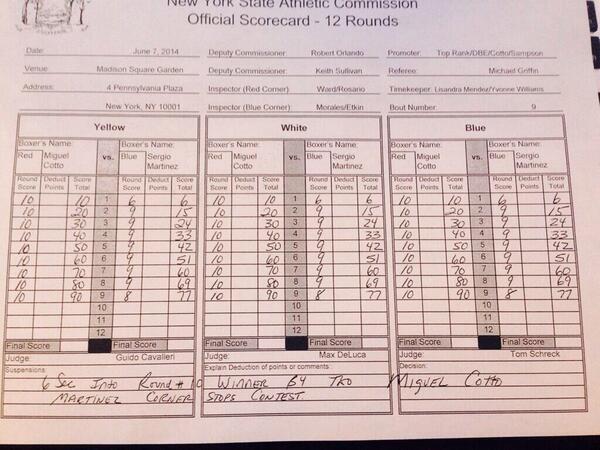 New York State Athletic Commission
Official Scorecard - 12 Rounds
Date: June 7, 2014 Deputy Commissioner: Robert Orlando Promoter: Top Rank/DBE/Cotto/Sampson
Venue: Madison Square Garden Deputy Commissioner: Keith Sullivan Referee: Michael Griffin
Address: 4 Pennsylvania Plaza Inspector (Red Corner) Ward/Rosario Timekeeper: Lisandra Mendez/Yvonne Williams
New York, NY 10001 Inspector (Blue Corner): Morales/Etkin Bout Number: 9
Yellow White Blue
Boxer's Name: Boxer's Name: Boxer's Name: Boxer's Name: Boxer's Name: Boxer's Name:
Red Miguel Cotto vs. Blue Sergio Martinez Red Miguel Cotto vs. Blue Sergio Martinez Red Miguel Cotto vs. Blue Sergio Martinez
Round Score Deduct Points Score Total Round Score Deduct Points Score Total Round Score Deduct Points Score Total Round Score Deduct Points Score Total Round Score Deduct Points Score Total Round Score Deduct Points Score Total
10 10 1 6 6 10 10 1 6 6 10 10 1 6 6
10 20 2 9 15 10 20 2 9 15 10 20 2 9 15
10 30 3 9 24 10 30 3 9 24 10 30 3 9 24
10 40 4 9 33 10 40 4 9 33 10 40 4 9 33
10 50 5 9 42 10 50 5 9 42 10 50 5 9 42
10 60 6 9 51 10 60 6 9 51 10 60 6 9 51
10 70 7 9 60 10 70 7 9 60 10 70 7 9 60
10 80 8 9 69 10 80 8 9 69 10 80 8 9 69
10 90 9 8 77 10 90 9 8 77 10 90 9 8 77
10 10 10
11 11 11
12 12 12
Final Score Final Score Final Score Final Score Final Score Final Score
Judge: Guido Cavalleri Judge: Max DeLuca Judge: Tom Schreck
Suspensions: Explain Deduction of points or comments: Decision:
6 Sec Into Round # 10 WINNER BY TKO MIGUEL COTTO
MARTINEZ CORNER STOPS CONTEST.